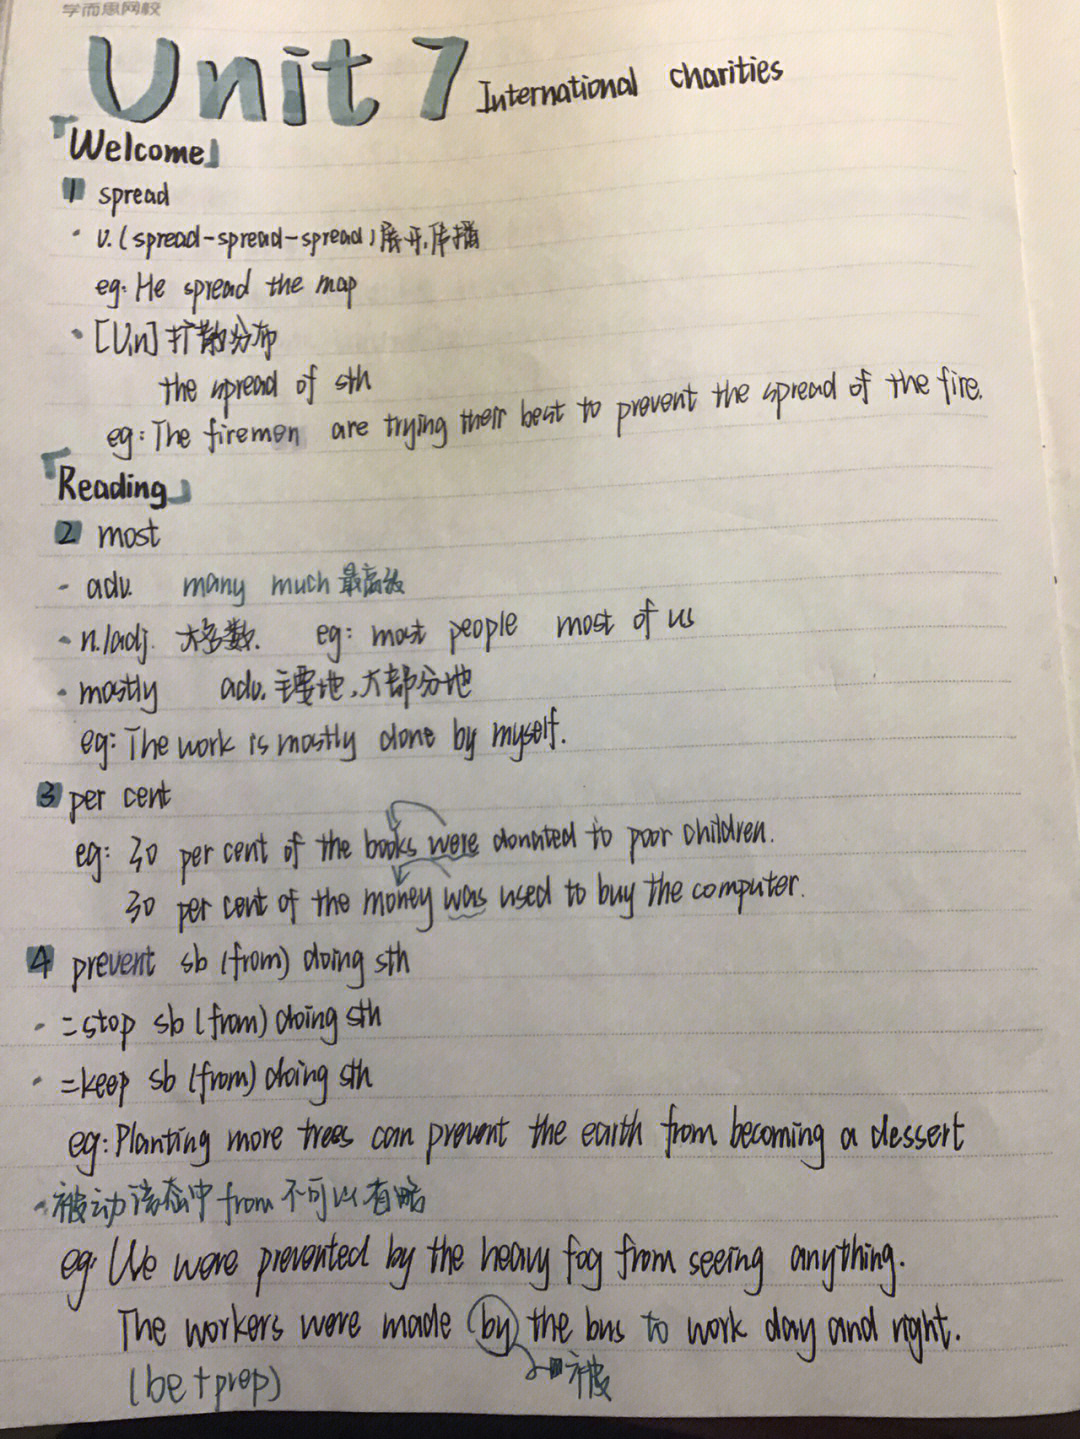 学而思网校
Unit 7 International charities
「Welcome」
1 spread
· v. (spread-spread-spread) 展开,传播
eg: He spread the map
· [U,n] 扩散分布
the spread of sth
eg: The firemen are trying their best to prevent the spread of the fire.
「Reading」
2 most
- adv. many much 最高级
· n./adj. 大多数. eg: most people most of us
· mostly adv. 主要地,大部分地
eg: The work is mostly done by myself.
3 per cent
eg: 30 per cent of the books were donated to poor children.
30 per cent of the money was used to buy the computer.
4 prevent sb (from) doing sth
· =stop sb (from) doing sth
· =keep sb (from) doing sth
eg: Planting more trees can prevent the earth from becoming a dessert
· 被动语态中from不可以省略
eg: We were prevented by the heavy fog from seeing anything.
The workers were made by the bus to work day and night.
(be+prep) 被